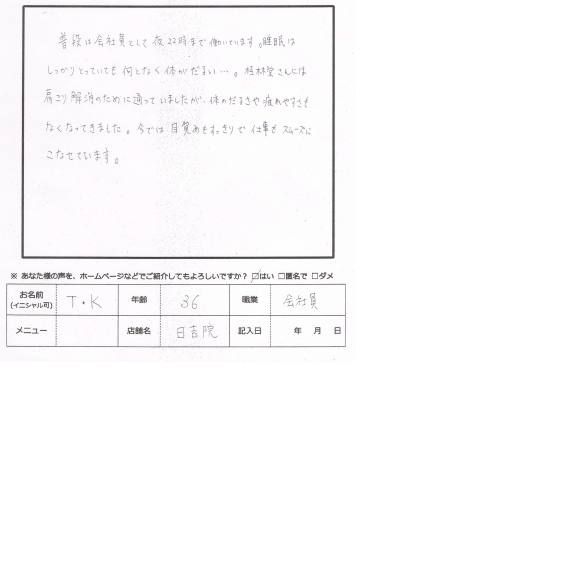 普段は会社員として夜22時まで働いています。睡眠は
しっかりとっていても何となく体がだるい…。桂林堂さんには
肩こり解消のために通っていましたが、体のだるさや疲れやすさも
なくなってきました。今では目覚めもすっきりで仕事もスムーズに
こなせています。
※ あなた様の声を、ホームページなどでご紹介してもよろしいですか? ☑はい □匿名で □ダメ
お名前 (イニシャル可) T・K 年齢 36 職業 会社員
メニュー 店舗名 日吉院 記入日 年 月 日